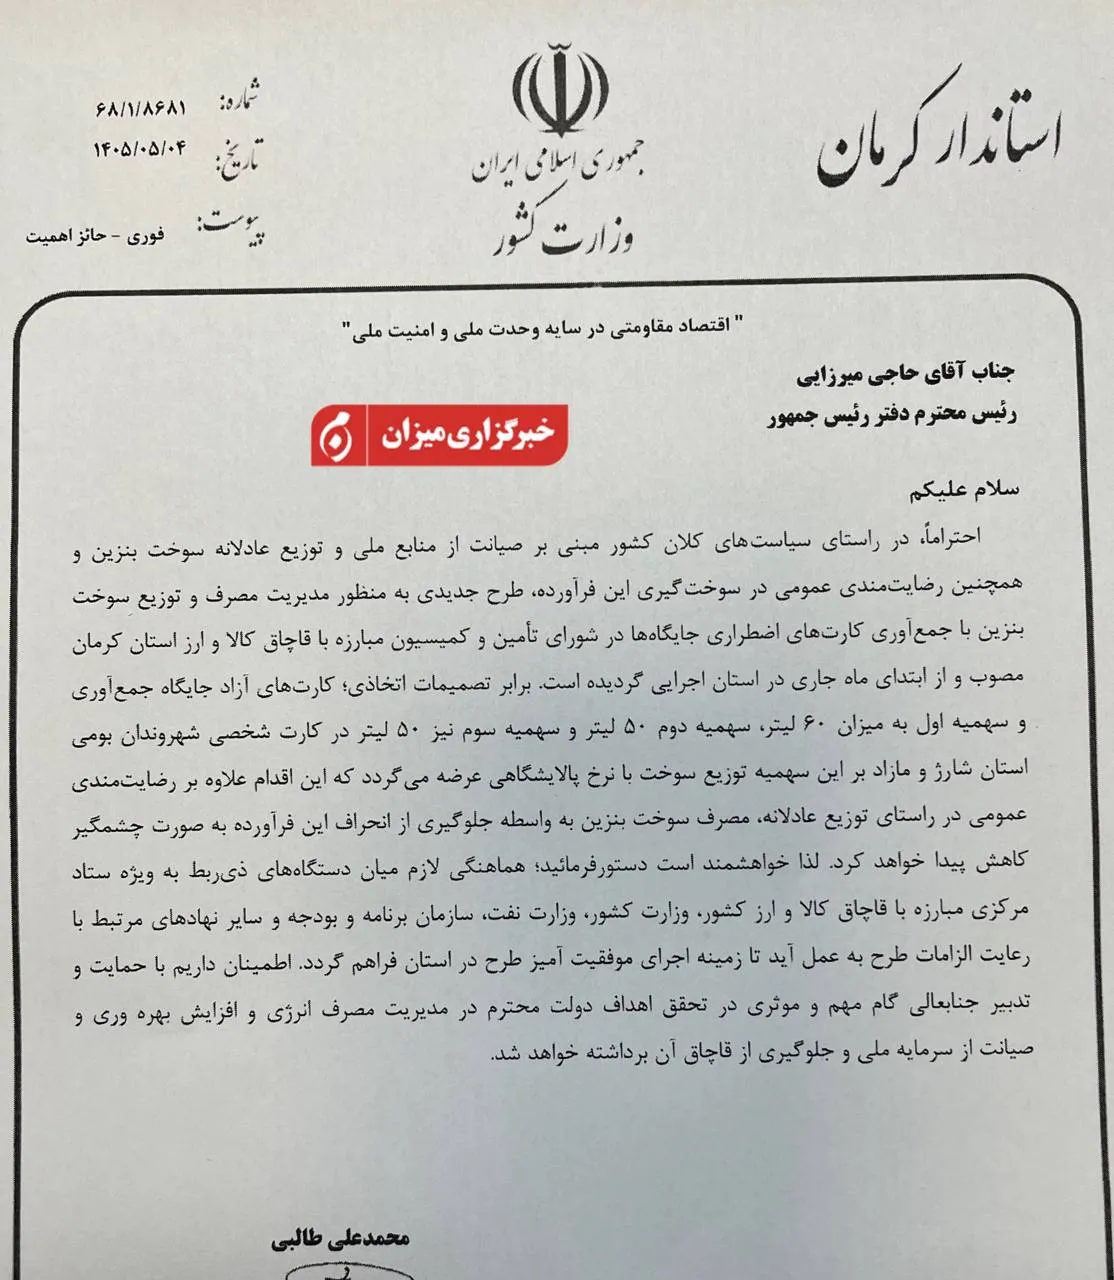 استاندار کرمان
جمهوری اسلامی ایران
وزارت کشور
شماره: ۶۸/۱/۸۶۸۱
تاریخ: ۱۴۰۵/۰۵/۰۴
پیوست: فوری - حائز اهمیت
" اقتصاد مقاومتی در سایه وحدت ملی و امنیت ملی"
جناب آقای حاجی میرزایی
رئیس محترم دفتر رئیس جمهور
خبرگزاری میزان
سلام علیکم
احتراماً، در راستای سیاست‌های کلان کشور مبنی بر صیانت از منابع ملی و توزیع عادلانه سوخت بنزین و
همچنین رضایت‌مندی عمومی در سوخت‌گیری این فرآورده، طرح جدیدی به منظور مدیریت مصرف و توزیع سوخت
بنزین با جمع‌آوری کارت‌های اضطراری جایگاه‌ها در شورای تأمین و کمیسیون مبارزه با قاچاق کالا و ارز استان کرمان
مصوب و از ابتدای ماه جاری در استان اجرایی گردیده است. برابر تصمیمات اتخاذی؛ کارت‌های آزاد جایگاه جمع‌آوری
و سهمیه اول به میزان ۶۰ لیتر، سهمیه دوم ۵۰ لیتر و سهمیه سوم نیز ۵۰ لیتر در کارت شخصی شهروندان بومی
استان شارژ و مازاد بر این سهمیه توزیع سوخت با نرخ پالایشگاهی عرضه می‌گردد که این اقدام علاوه بر رضایت‌مندی
عمومی در راستای توزیع عادلانه، مصرف سوخت بنزین به واسطه جلوگیری از انحراف این فرآورده به صورت چشمگیر
کاهش پیدا خواهد کرد. لذا خواهشمند است دستورفرمائید؛ هماهنگی لازم میان دستگاه‌های ذی‌ربط به ویژه ستاد
مرکزی مبارزه با قاچاق کالا و ارز کشور، وزارت کشور، وزارت نفت، سازمان برنامه و بودجه و سایر نهادهای مرتبط با
رعایت الزامات طرح به عمل آید تا زمینه اجرای موفقیت آمیز طرح در استان فراهم گردد. اطمینان داریم با حمایت و
تدبیر جنابعالی گام مهم و موثری در تحقق اهداف دولت محترم در مدیریت مصرف انرژی و افزایش بهره وری و
صیانت از سرمایه ملی و جلوگیری از قاچاق آن برداشته خواهد شد.
محمدعلی طالبی